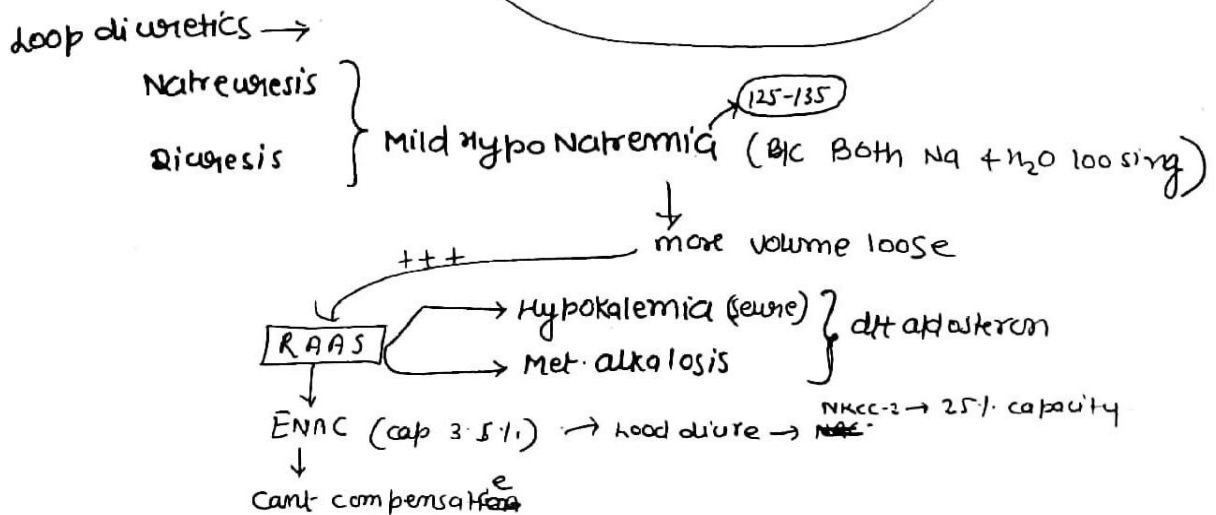 Loop diuretics →
Natreuresis
Diuresis
125-135
Mild Hypo Natremia (B/C Both Na + H₂O loosing)
more volume loose
+++
RAAS
Hypokalemia (seure)
Met. alkalosis
d/t aldosteron
ENAC (cap 3.5%) → Lood diure → NKCC-2 → 25% capacity
Cant compensate